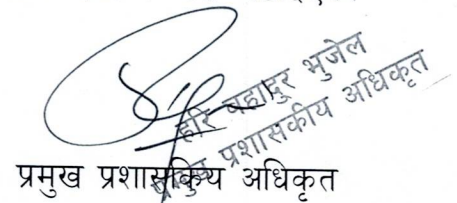 हरि बहादुर भुजेल
प्रमुख प्रशासकीय अधिकृत
प्रमुख प्रशासकिय अधिकृत